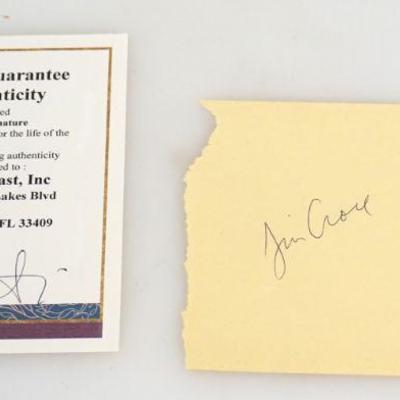 uarantee
nticity
ed
nature
or the life of the
g authenticity
ed to :
ast, Inc
akes Blvd
FL 33409
Jim Croce